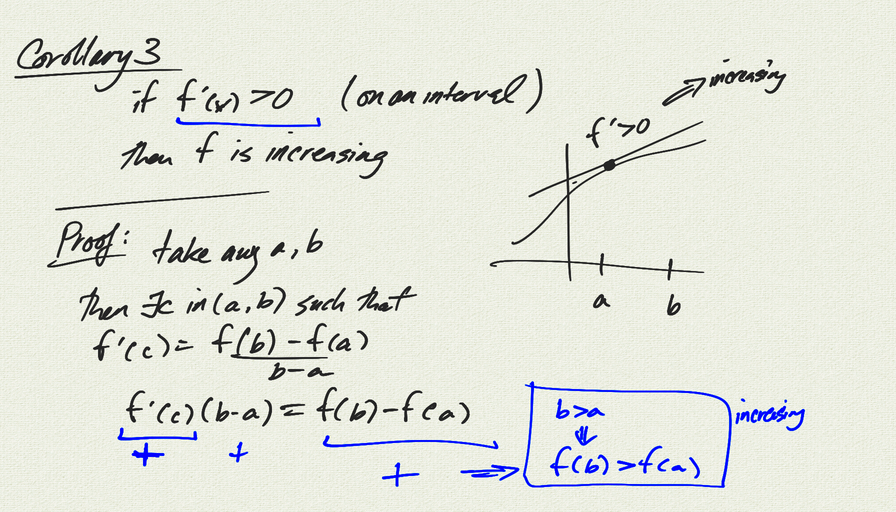 Corollary 3
if f'(x) > 0 (on an interval)
then f is increasing
increasing
f' > 0
a b
Proof: take any a, b
then ∃c in (a, b) such that
f'(c) = f(b) - f(a)
b - a
f'(c)(b-a) = f(b) - f(a)
+ + + ⇒
b > a
⇓
f(b) > f(a)
increasing